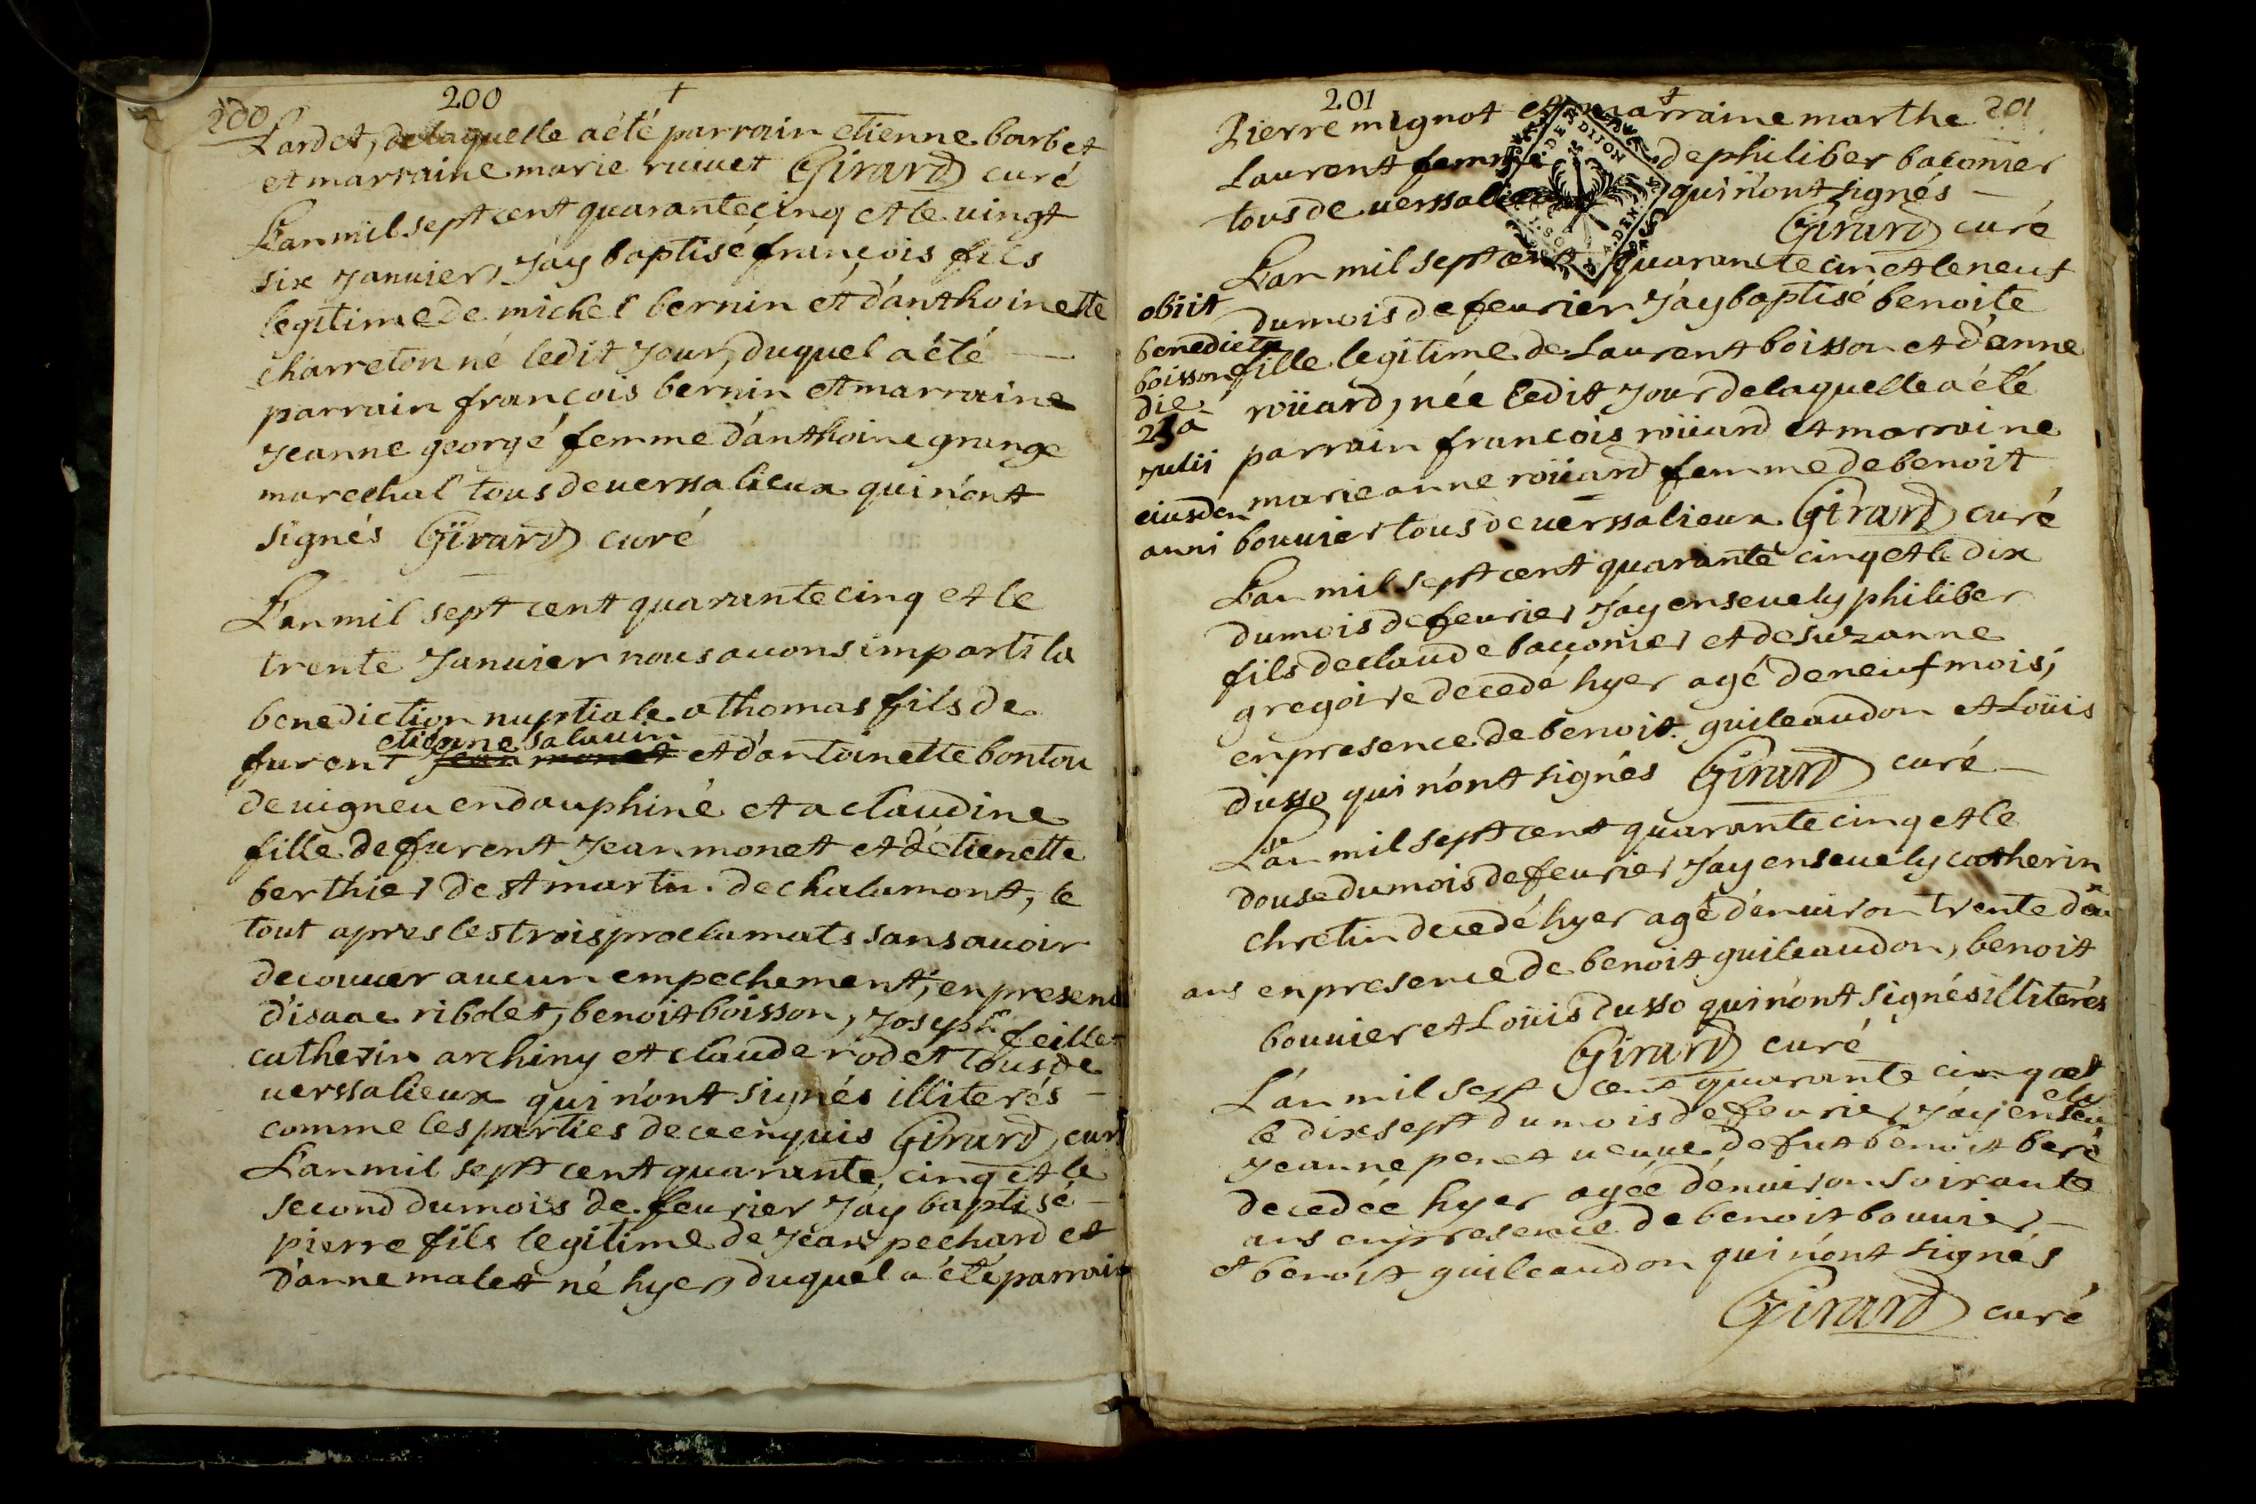 200
200
Lardet, delaquelle a été parrain etienne barbet
et marraine marie riuuet Girard curé
L'an mil sept cent quarante cinq et le uingt
six Januier, J'ay baptisé françois fils
legitime de michel bernin et d'anthoinette
charreton né ledit Jour, duquel a été
parrain françois bernin et marraine
Jeanne georgé femme d'anthoine grange
marechal tous de uerssalieux qui n'ont
signés Girard curé
L'an mil sept cent quarante cinq et le
trente Januier nous auons imparti la
benediction nuptiale a thomas fils de
etienne salauin
furent jean monet et d'antoinette bontou
de uigneu en dauphiné et a claudine
fille de furent Jean monet et d'etienette
berthier de st martin de chalamont, le
tout apres les trois proclamats sans auoir
decouuer aucun empechement, en presence
d'isaac ribolet, benoit boisson, Joseph feillet
catherin archiny et claude rodet tous de
uerssalieux qui n'ont signés illiterés
comme les parties de ce enquis Girard curé
L'an mil sept cent quarante cinq et le
second du mois de feurier J'ay baptisé
pierre fils legitime de Jean pechard et
d'anne malet né hyer, duquel a été parrain
201
201
Pierre mignot et marraine marthe
Laurent femme de philiber baconier
tous de uerssalieux qui n'ont signés
Girard curé
L'an mil sept cent quarante cin et le neuf
du mois de feurier J'ay baptisé benoite
fille legitime de Laurent boisson et d'anne
roüard, née ledit Jour delaquelle a été
parrain françois roüard et marraine
marie anne roüard femme de benoit
bouuier tous de uerssalieux Girard curé
obiit
benedicta
boisson
die
23a
Julii
eiusdem
anni
L'an mil sept cent quarante cinq et le dix
du mois de feurier J'ay enseuely philiber
fils de claude baconier et de suzanne
gregoire decedé hyer agé de neuf mois,
en presence de benoit guileaudon et Loüis
dusso qui n'ont signés Girard curé
L'an mil sept cent quarante cinq et le
douse du mois de feurier J'ay enseuely catherin
chretin decedé hyer agé d'enuiron trente deux
ans en presence de benoit guileaudon, benoit
bouuier et Loüis dusso qui n'ont signés illiterés
Girard curé
L'an mil sept cent quarante cinq et
le dix sept du mois de feurier J'ay enseuely
Jeanne penet ueuue de fut benoit beré
decedée hyer agée d'enuiron soixante
ans en presence de benoit bouuier
et benoit guileaudon qui n'ont signés
Girard curé